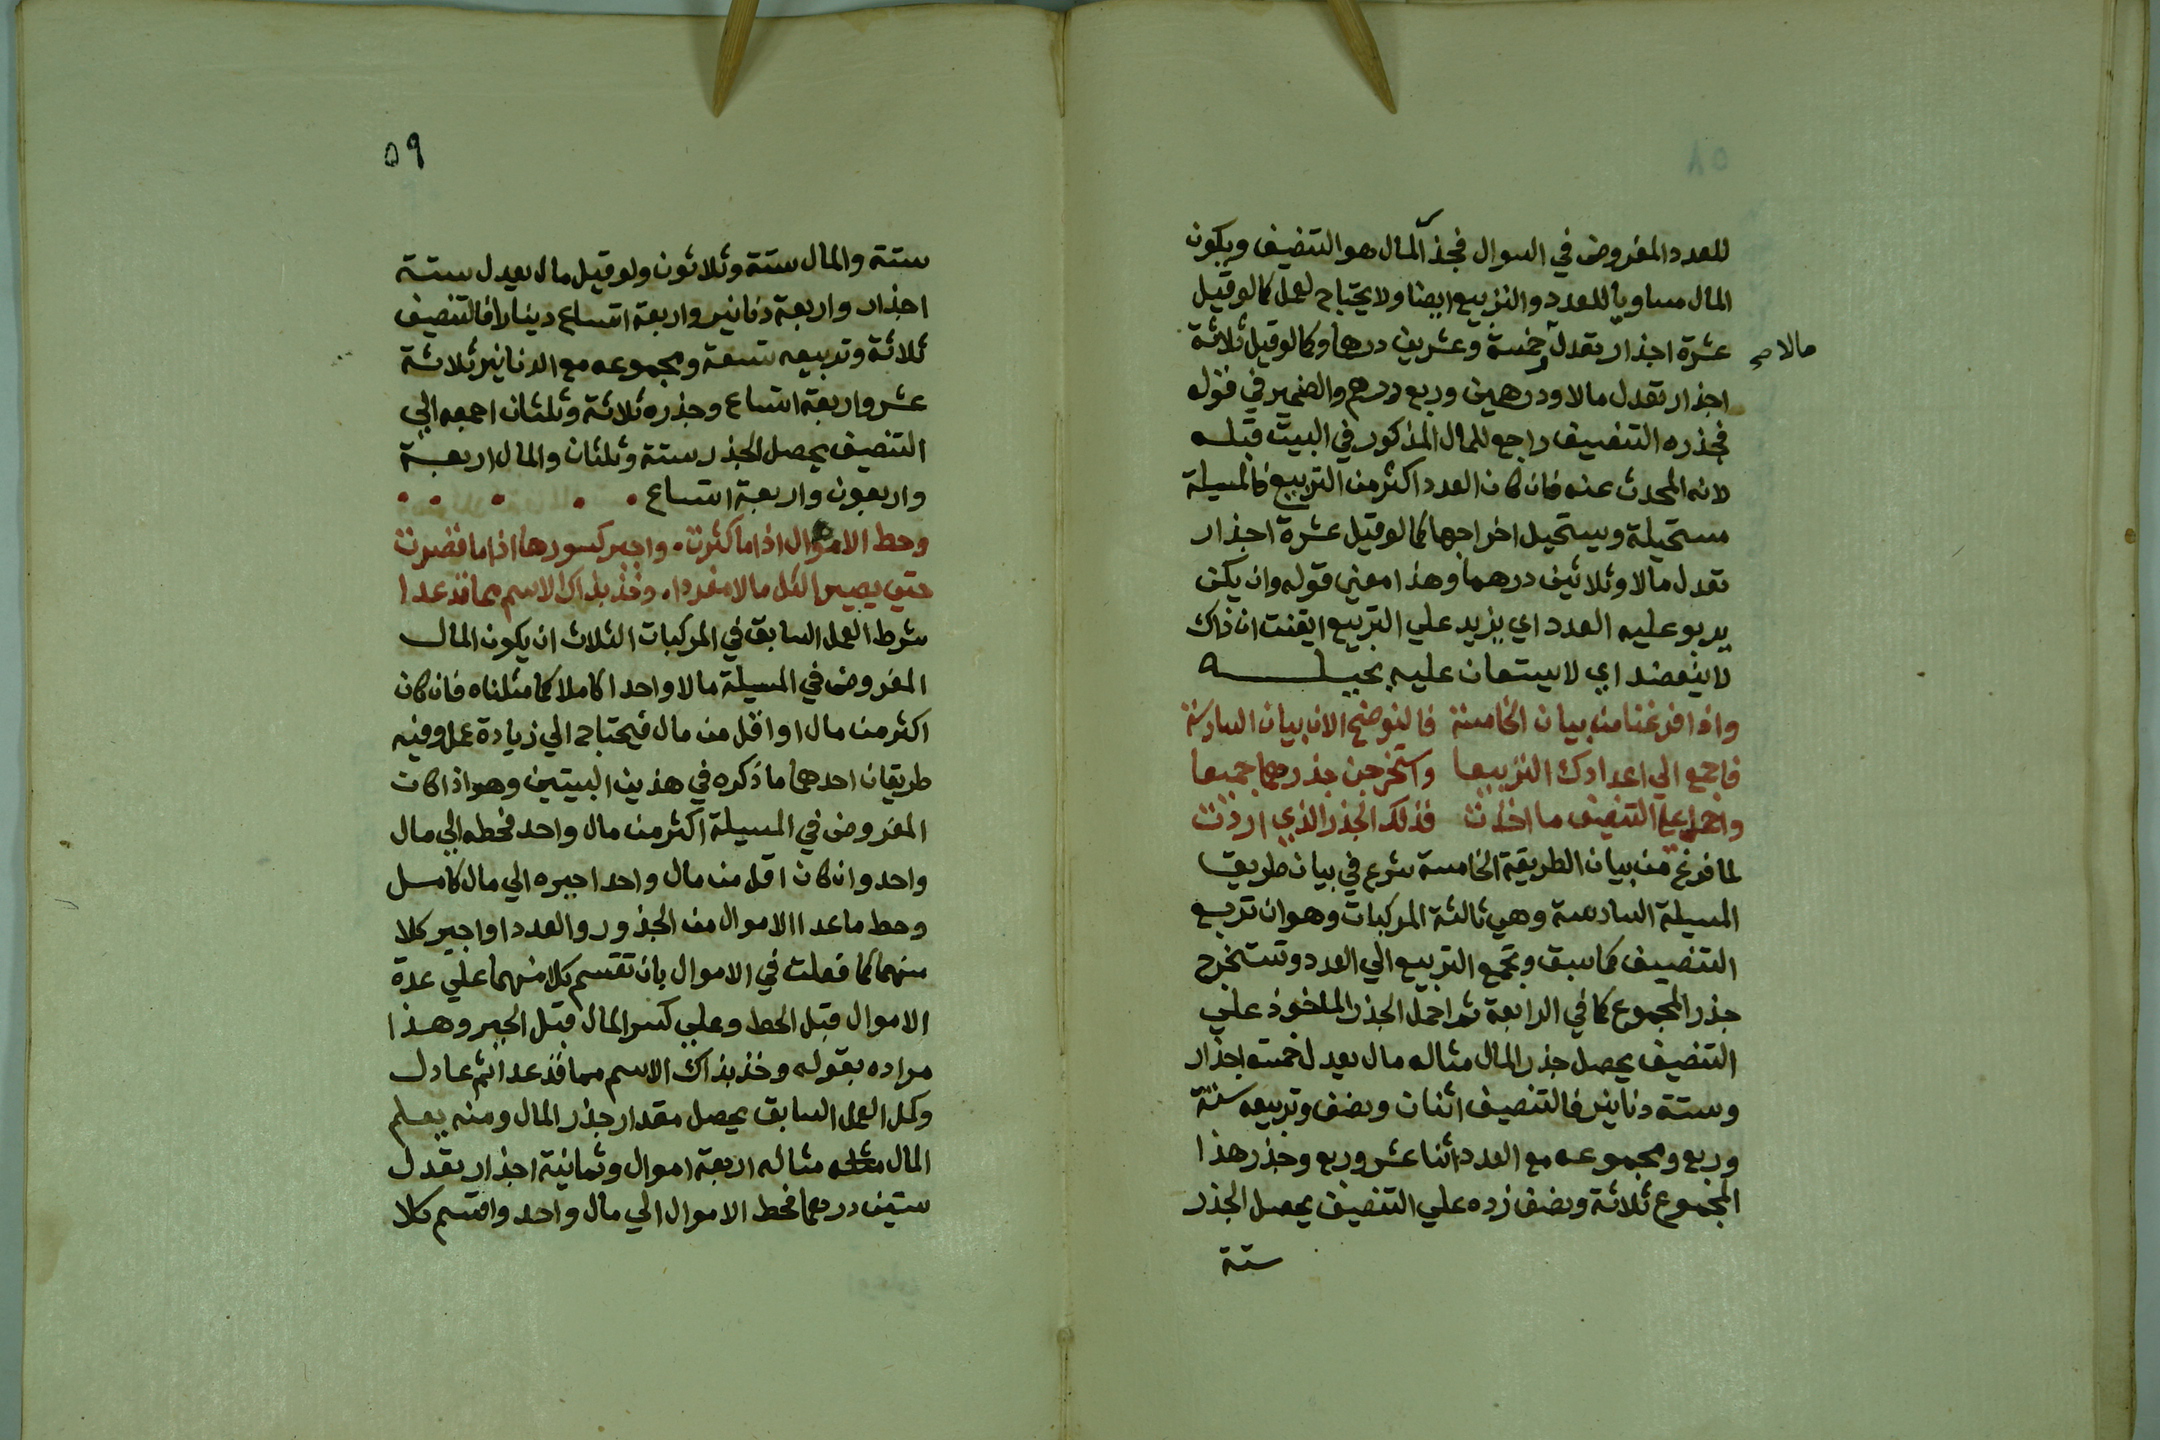 ٥٨
للعدد المفروض في السوال فجذر المال هو التنصيف ويكون
المال مساويا للعدد والتربيع ايضا ولا يحتاج لعمل كما لو قيل
عشرة اجذار تعدل خمسة وعشرين درهما وكما لو قيل ثلاثة
مالا صح
اجذار تعدل مالا ودرهمين وربع درهم والضمير في قوله
فجذره التنصيف راجع للمال المذكور في البيت قبله
لانه المحدث عنه فان كان العدد اكثر من التربيع فالمسيلة
مستحيلة ويستحيل اخراجها كما لو قيل عشرة اجذار
تعدل مالا وثلاثين درهما وهذا معني قوله وان يكن
يربو عليه العدد اي يزيد علي التربيع ايقنت ان ذاك
لا ينعضد اي لا يستعان عليه بحيلــه
واذا فرغنا من بيان الخامسة فالنوضح الان بيان السادسة
فاجمع الي اعدادك التربيعا واستخرجن جذرهما جميعا
واحمل علي التنصيف ما اخذت فذلك الجذر الذي اردت
لما فرغ من بيان الطريقة الخامسة شرع في بيان طريق
المسيلة السادسة وهي ثالثة المركبات وهو ان تربع
التنصيف كما سبق وتجمع التربيع الي العدد وتستخرج
جذر المجموع كما في الرابعة ثم احمل الجذر الماخوذ علي
التنصيف يحصل جذر المال مثاله مال يعدل خمسة اجذار
وستة دنانير فالتنصيف اثنان ونصف وتربيعه ستة
وربع ومجموعه مع العدد اثنا عشر وربع وجذر هذا
المجموع ثلاثة ونصف زده علي التنصيف يحصل الجذر
ستة
٥٩
ستة والمال ستة وثلاثون ولو قيل مال يعدل ستة
اجذار واربعة دنانير واربعة اتساع دينار فالتنصيف
ثلاثة وتربيعه تسعة ومجموعه مع الدنانير ثلاثة
عشر واربعة اتساع وجذره ثلاثة وثلثان اجمعه الي
التنصيف يحصل الجذر ستة وثلثان والمال اربعة
واربعون واربعة اتساع
وحط الاموال اذا ما كثرت واجبر كسورها اذا ما قصرت
حتي يصير الكل مالا مفردا وخذ بذاك الاسم مما قد عدا
شرط العمل السابق في المركبات الثلاث ان يكون المال
المفروض في المسيلة مالا واحدا كاملا كما مثلناه فان كان
اكثر من مال او اقل من مال فيحتاج الي زيادة عمل وفيه
طريقان احدهما ما ذكره في هذين البيتين وهو اذا كان
المفروض في المسيلة اكثر من مال واحد فحطه الي مال
واحد وان كان اقل من مال واحد اجبره الي مال كامل
وحط ما عدا الاموال من الجذور والعدد او اجبر كلا
منهما كما فعلت في الاموال بان تقسم كلا منهما علي عدة
الاموال قبل الحط وعلي كسر المال قبل الجبر وهذا
مراده بقوله وخذ بذاك الاسم مما قد عدا ثم عادل
وكمل العمل السابق يحصل مقدار جذر المال ومنه يعلم
المال مثاله اربعة اموال وثمانية اجذار تعدل
ستين درهما فحط الاموال الي مال واحد واقسم كلا